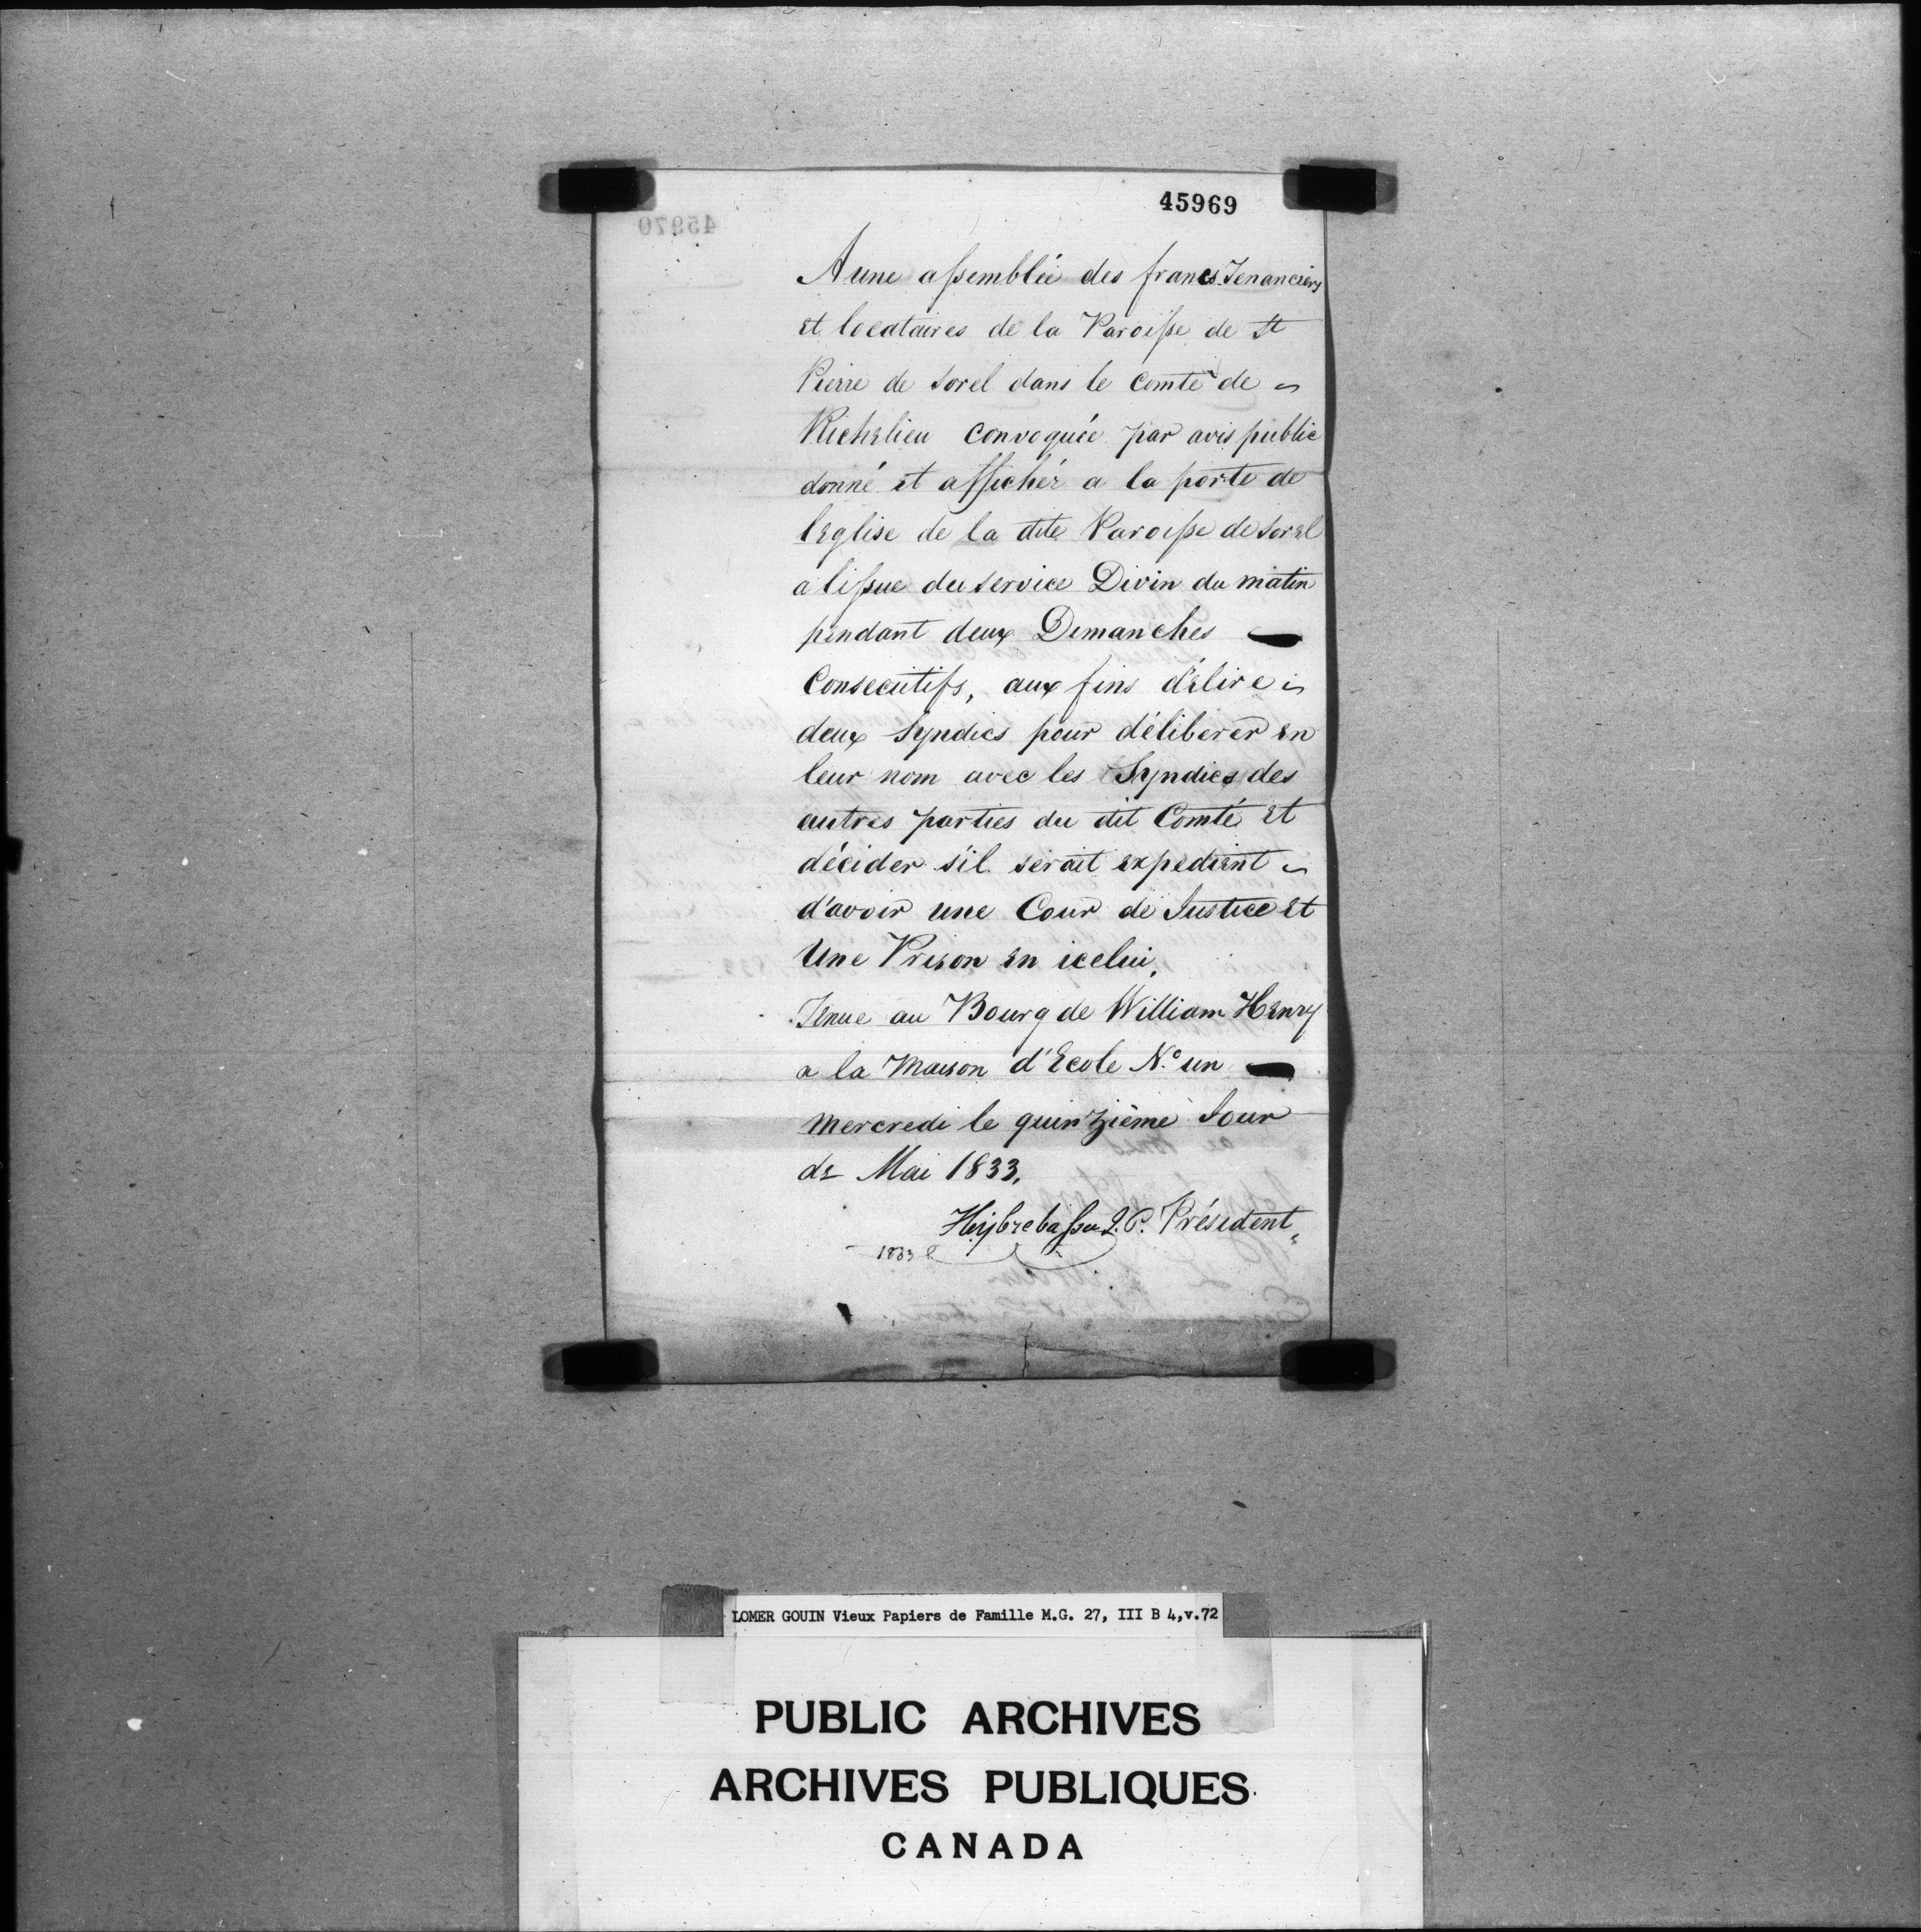 45969
45970
A une assemblée des francs Tenanciers
et locataires de la Paroisse de St
Pierre de Sorel dans le Comté de
Richelieu Convoquée par avis public
donné et affiché a la porte de
l'Eglise de la dite Paroisse de Sorel
a l'issue du Service Divin du matin
pendant deux Dimanches
Consecutifs, aux fins d'élire
deux Syndics pour déliberer en
leur nom avec les Syndics des
autres parties du dit Comté et
décider s'il serait expedient
d'avoir une Cour de Justice et
Une Prison en icelui,
Tenue au Bourg de William Henry
a la Maison d'Ecole N.o un
Mercredi le quinzième Jour
de Mai 1833,
J.P. Président
1833
LOMER GOUIN Vieux Papiers de Famille M.G. 27, III B 4,v.72
PUBLIC ARCHIVES
ARCHIVES PUBLIQUES
CANADA